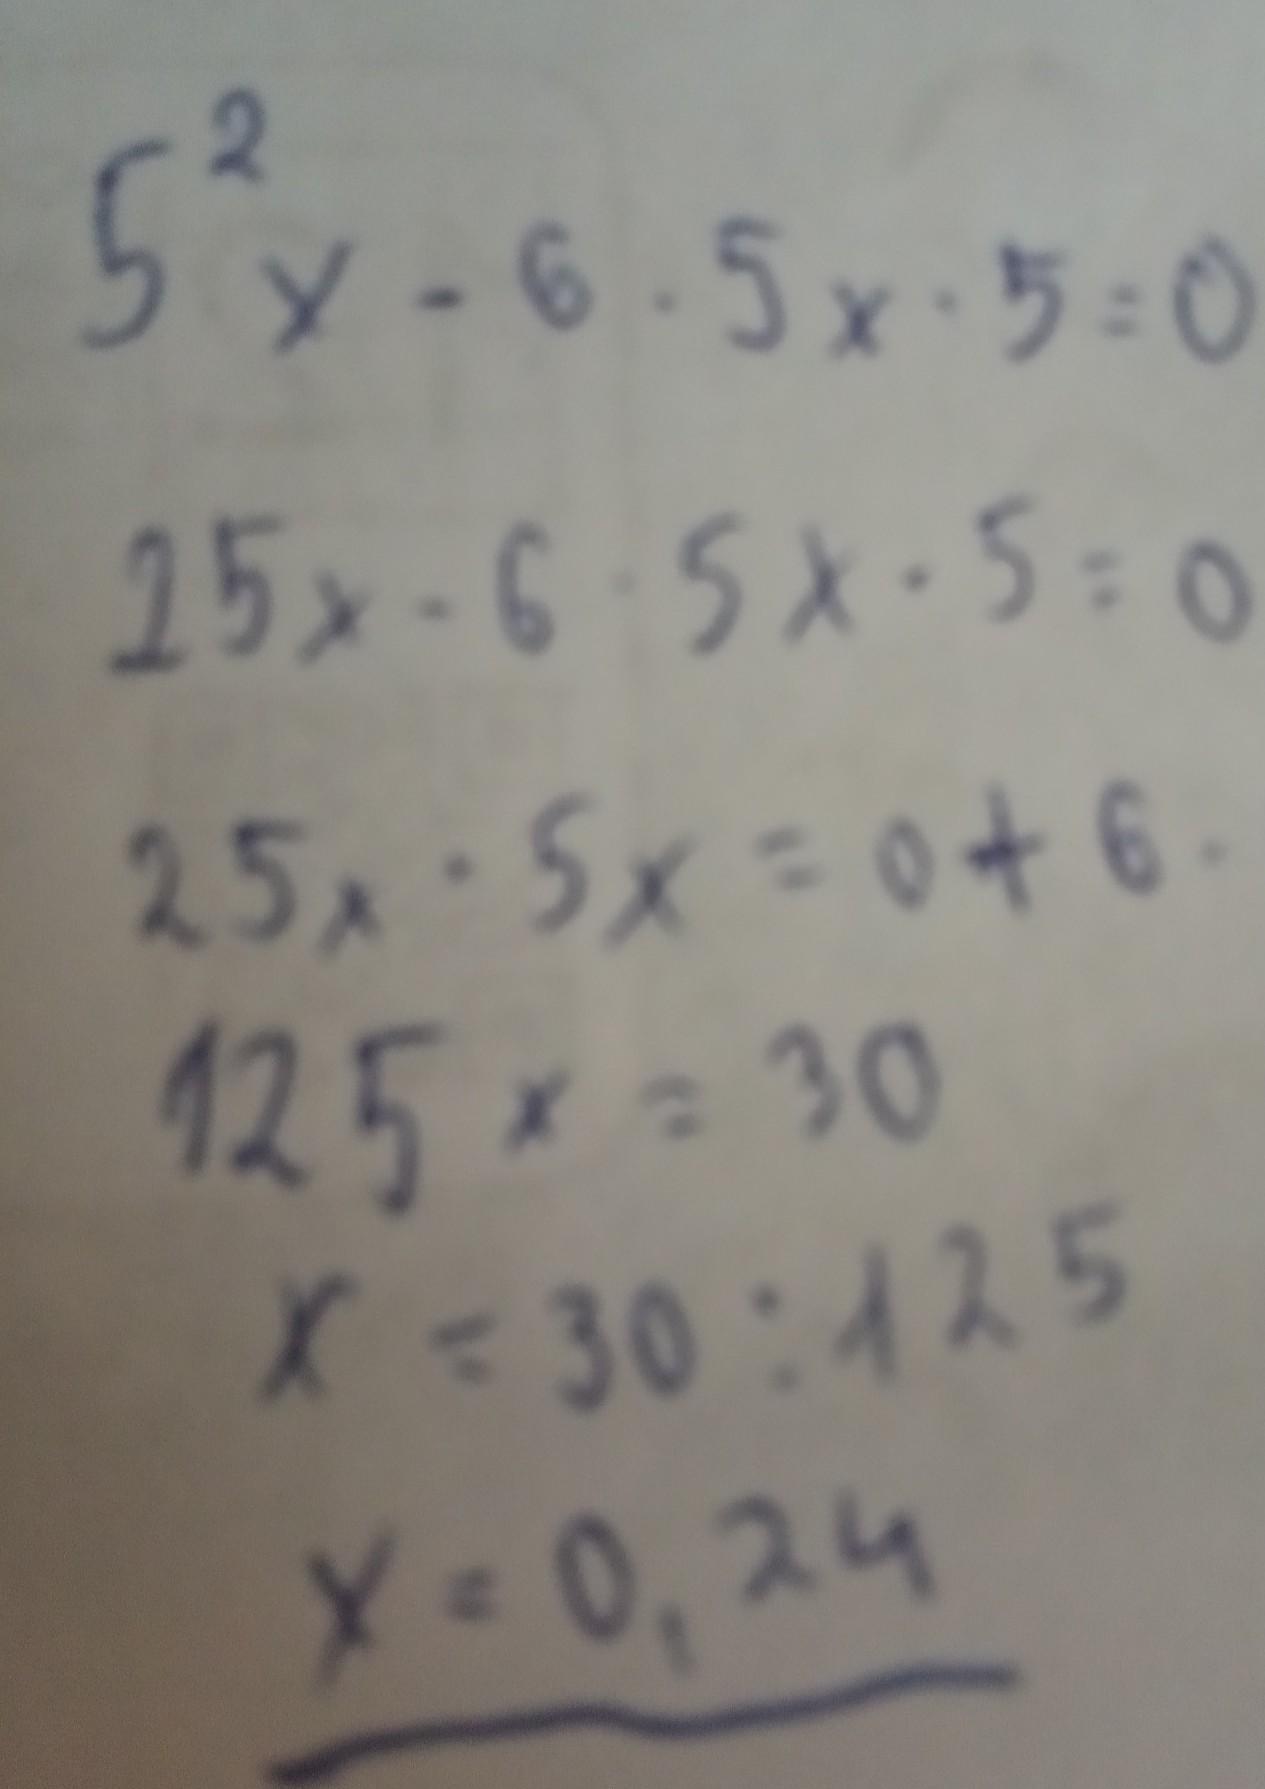 5² x - 6 · 5x · 5 = 0
25x - 6 · 5x · 5 = 0
25x · 5x = 0 + 6 ·
125x = 30
x = 30 : 125
x = 0,24